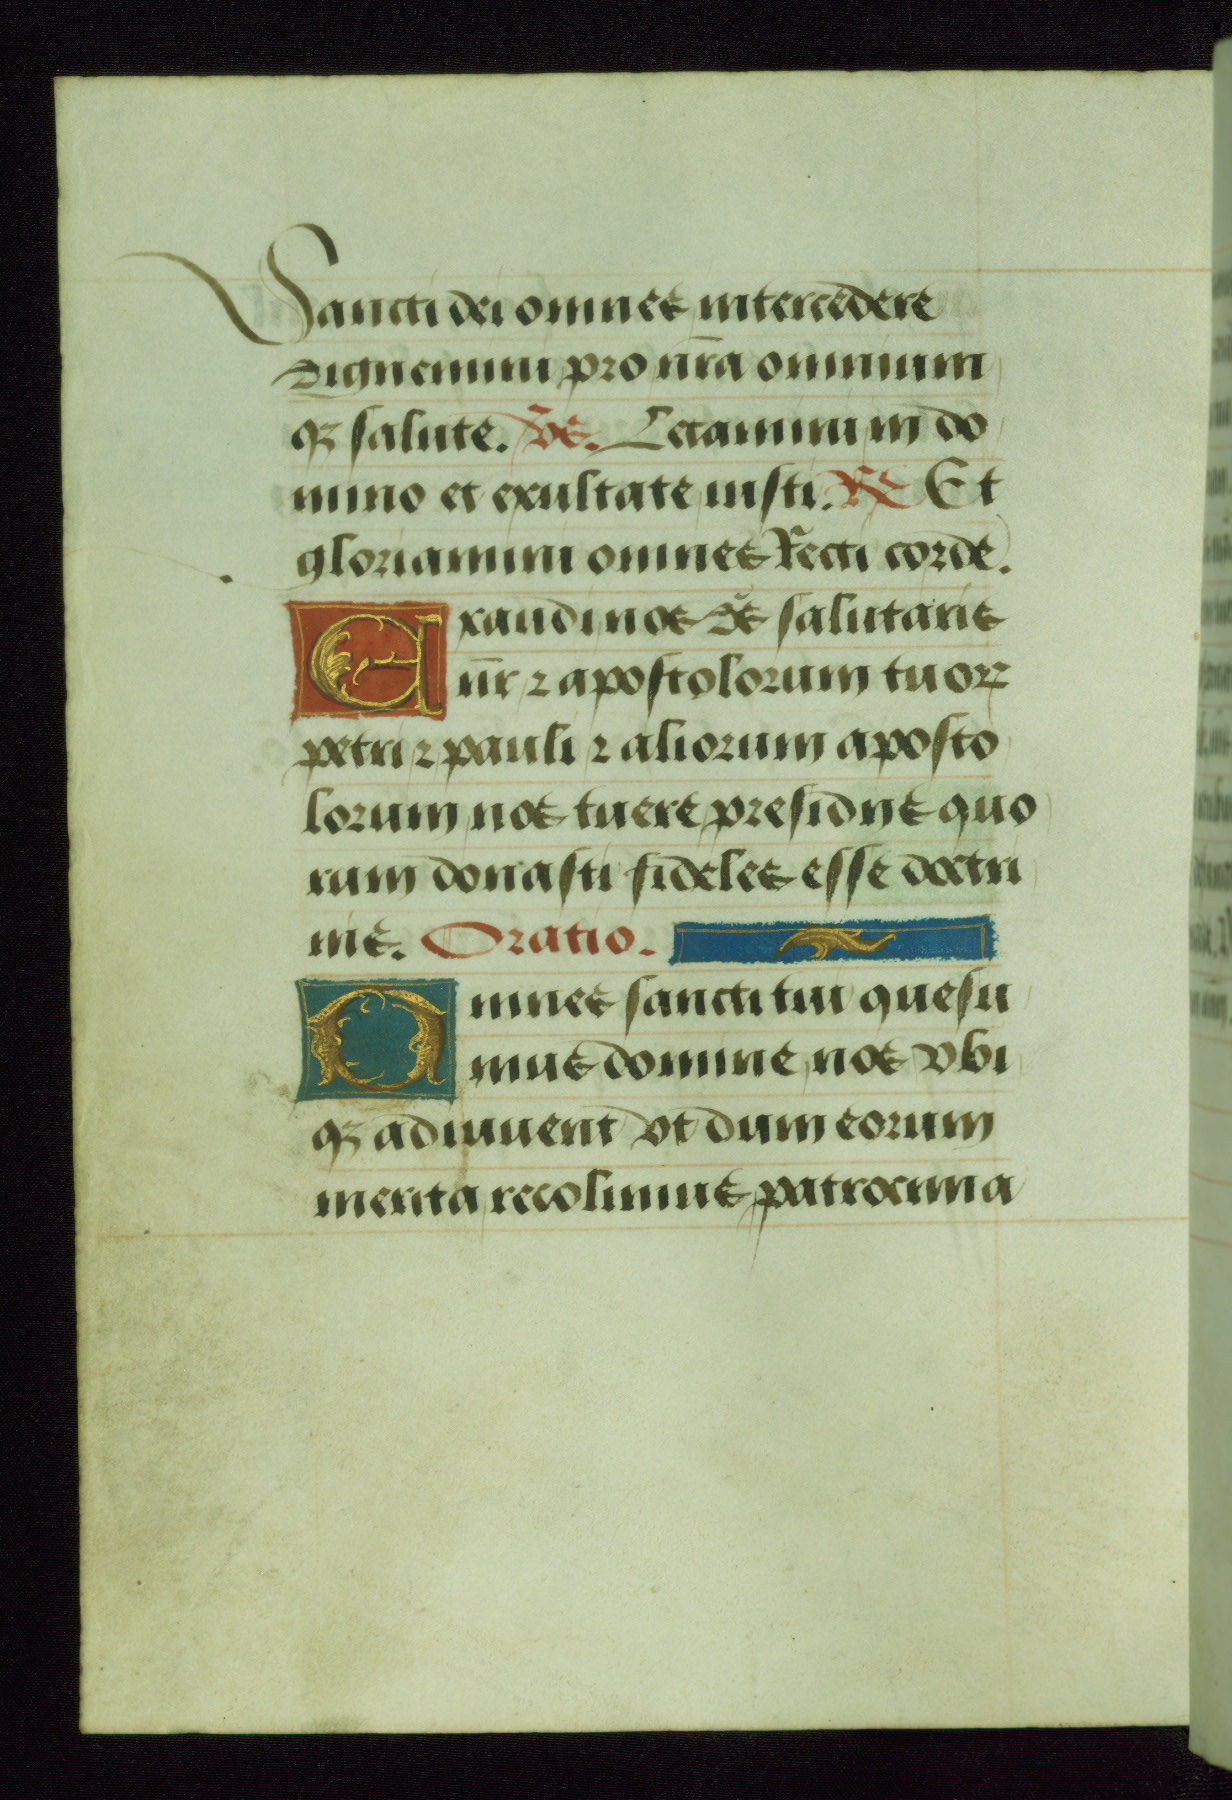 Sancti dei omnes intercedere
dignemini pro nr̄a omnium
qꝫ salute. Vs̄. Letamini in do
mino et exultate iusti. R̄ Et
gloriamini omnes Recti corde.
Exaudi nos ds̄ salutaris
nr̄ ⁊ apostolorum tuoꝝ
petri ⁊ pauli ⁊ aliorum aposto
lorum nos tuere presidijs quo
rum donasti fideles esse doctri
nis. Oratio.
Omnes sancti tui quesu
mus domine nos vbi
qꝫ adiuuent vt dum eorum
merita recolimus patrocinia